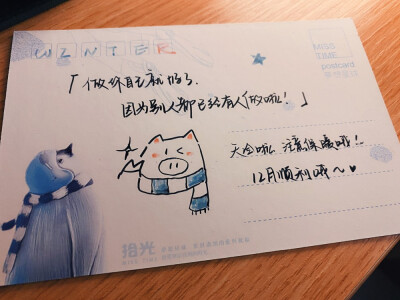 WINTER
MISS
TIME
postcard
「做好自己就够了,
因为别人都已经有人做啦!」
天冷啦 注意保暖哦!!
12月顺利哦~♥
拾光
MISS TIME